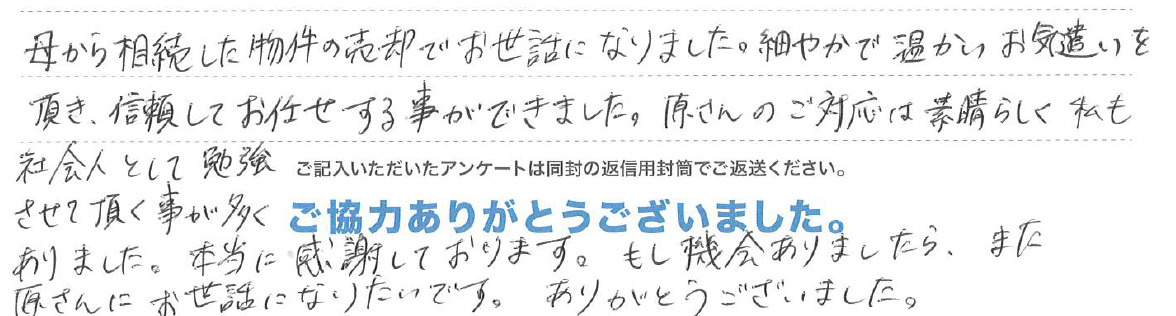 母から相続した物件の売却でお世話になりました。細やかで温かいお気遣いを
頂き、信頼してお任せする事ができました。原さんのご対応は素晴らしく私も
社会人として勉強
ご記入いただいたアンケートは同封の返信用封筒でご返送ください。
させて頂く事が多く
ご協力ありがとうございました。
ありました。本当に感謝しております。もし機会ありましたら、また
原さんにお世話になりたいです。ありがとうございました。